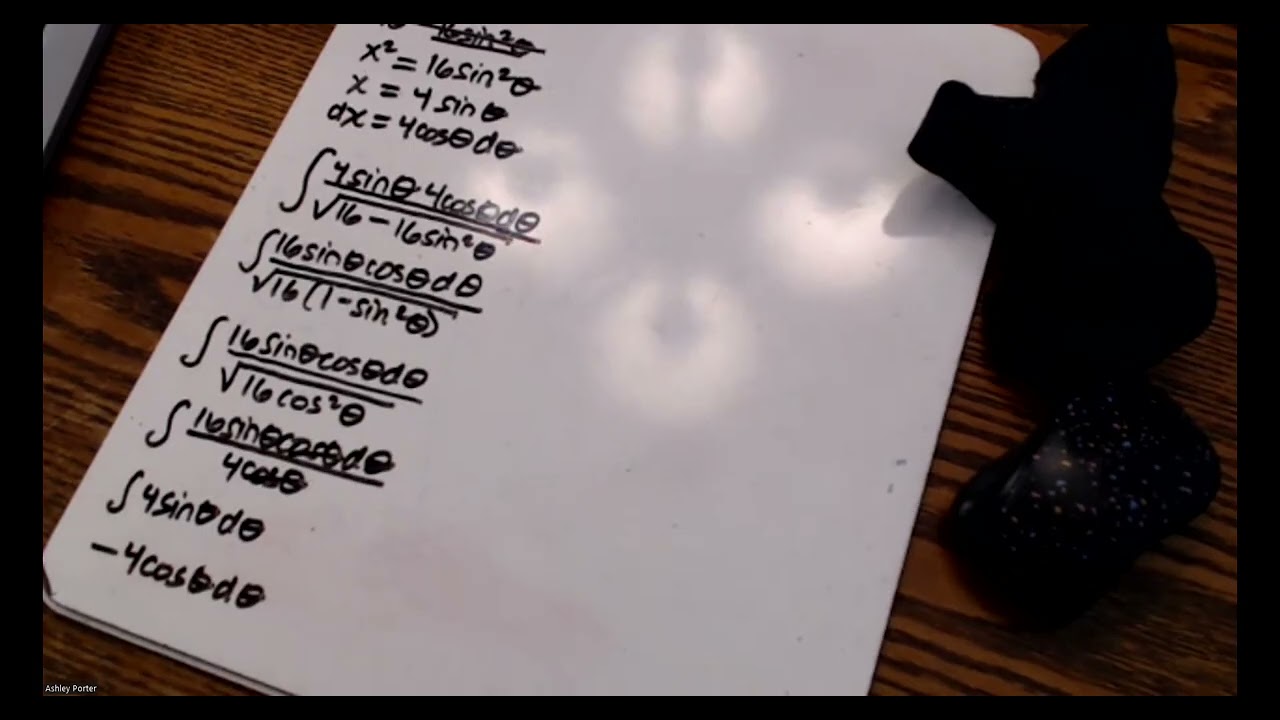 16sin²θ
x² = 16sin²θ
x = 4sinθ
dx = 4cosθdθ
∫ 4sinθ·4cosθdθ / √16 - 16sin²θ
∫ 16sinθcosθdθ / √16(1-sin²θ)
∫ 16sinθcosθdθ / √16cos²θ
∫ 16sinθcosθdθ / 4cosθ
∫ 4sinθdθ
-4cosθdθ
Ashley Porter